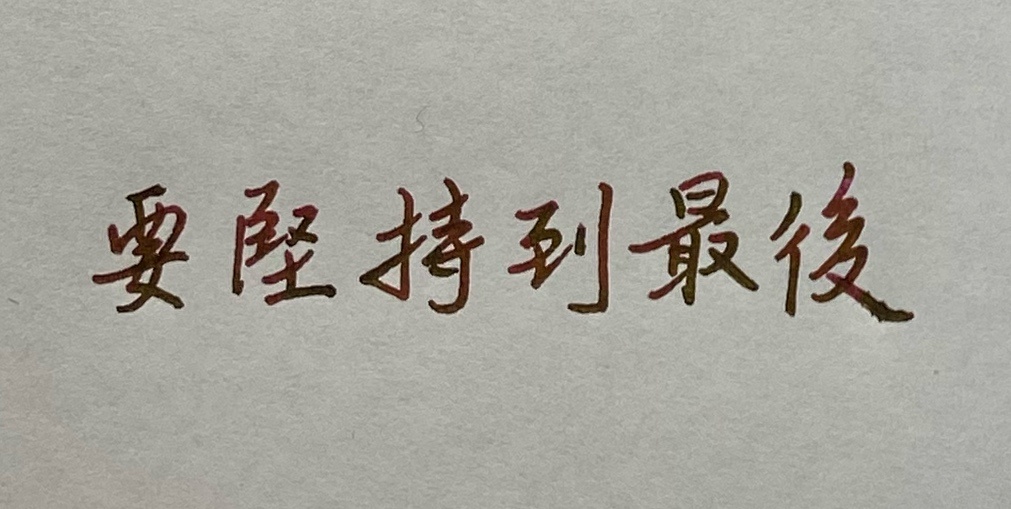 要堅持到最後